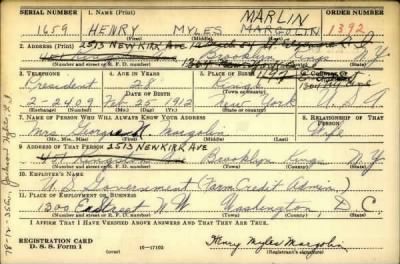 SERIAL NUMBER
1. NAME (Print)
MARLIN
ORDER NUMBER
1659
HENRY MYLES MARGOLIN
1392
(First) (Middle) (Last)
2. ADDRESS (Print) 2513 NEWKIRK AVE
Brooklyn Kings N.Y.
(Number and street or R. F. D. number) (Town) (County) (State)
3. TELEPHONE
4. AGE IN YEARS
5. PLACE OF BIRTH
6. COUNTRY OF CITIZENSHIP
President
28
Kings
DATE OF BIRTH
2-2409
Feb 25 1912
New York
U.S.A.
7. NAME OF PERSON WHO WILL ALWAYS KNOW YOUR ADDRESS
8. RELATIONSHIP OF THAT PERSON
Mrs. Georgia M. Margolin
Wife
(Mr., Mrs., Miss) (First) (Middle) (Last)
9. ADDRESS OF THAT PERSON 2513 NEWKIRK AVE
Brooklyn Kings N.Y.
(Number and street or R. F. D. number) (Town) (County) (State)
10. EMPLOYER'S NAME
U.S. Government (Farm Credit Admin.)
11. PLACE OF EMPLOYMENT OR BUSINESS
1300 E Street N.W. Washington, D C
(Number and street or R. F. D. number) (Town) (County) (State)
I AFFIRM THAT I HAVE VERIFIED ABOVE ANSWERS AND THAT THEY ARE TRUE.
REGISTRATION CARD
D. S. S. Form 1
(over)
16—17105
Henry Myles Margolin
(Registrant's signature)